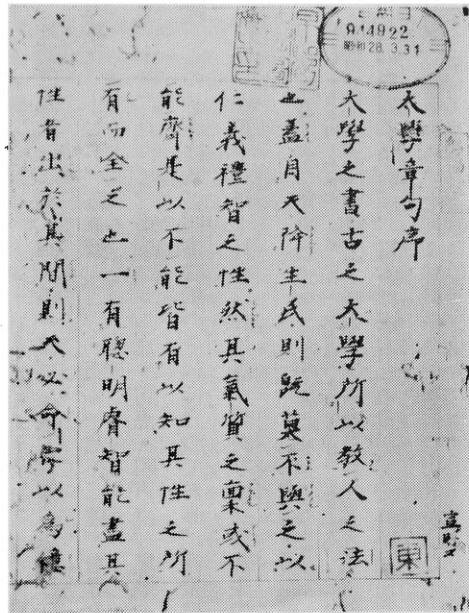 昭和28.3.31
大學章句序
東
大學之書古之大學所以教人之法
也蓋自天降生民則既莫不與之以
仁義禮智之性然其氣質之稟或不
能齊是以不能皆有以知其性之所
有而全之也一有聰明睿智能盡其
性者出於其間則天必命之以為億